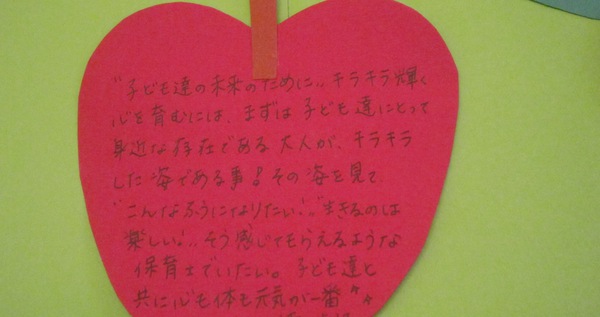 "子ども達の未来のために"キラキラ輝く
心を育むには、まずは子ども達にとって
身近な存在である大人が、キラキラ
した姿である事!その姿を見て、
"こんなふうになりたい!""生きるのは
楽しい!"そう感じてもらえるような
保育士でいたい。子ども達と
共に心も体も元気が一番